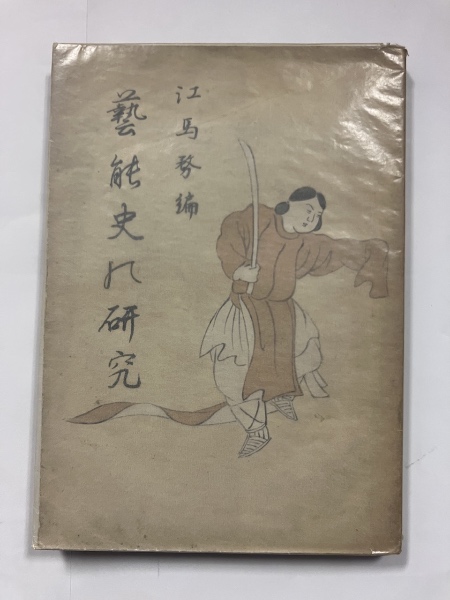 江馬務編
藝能史の研究